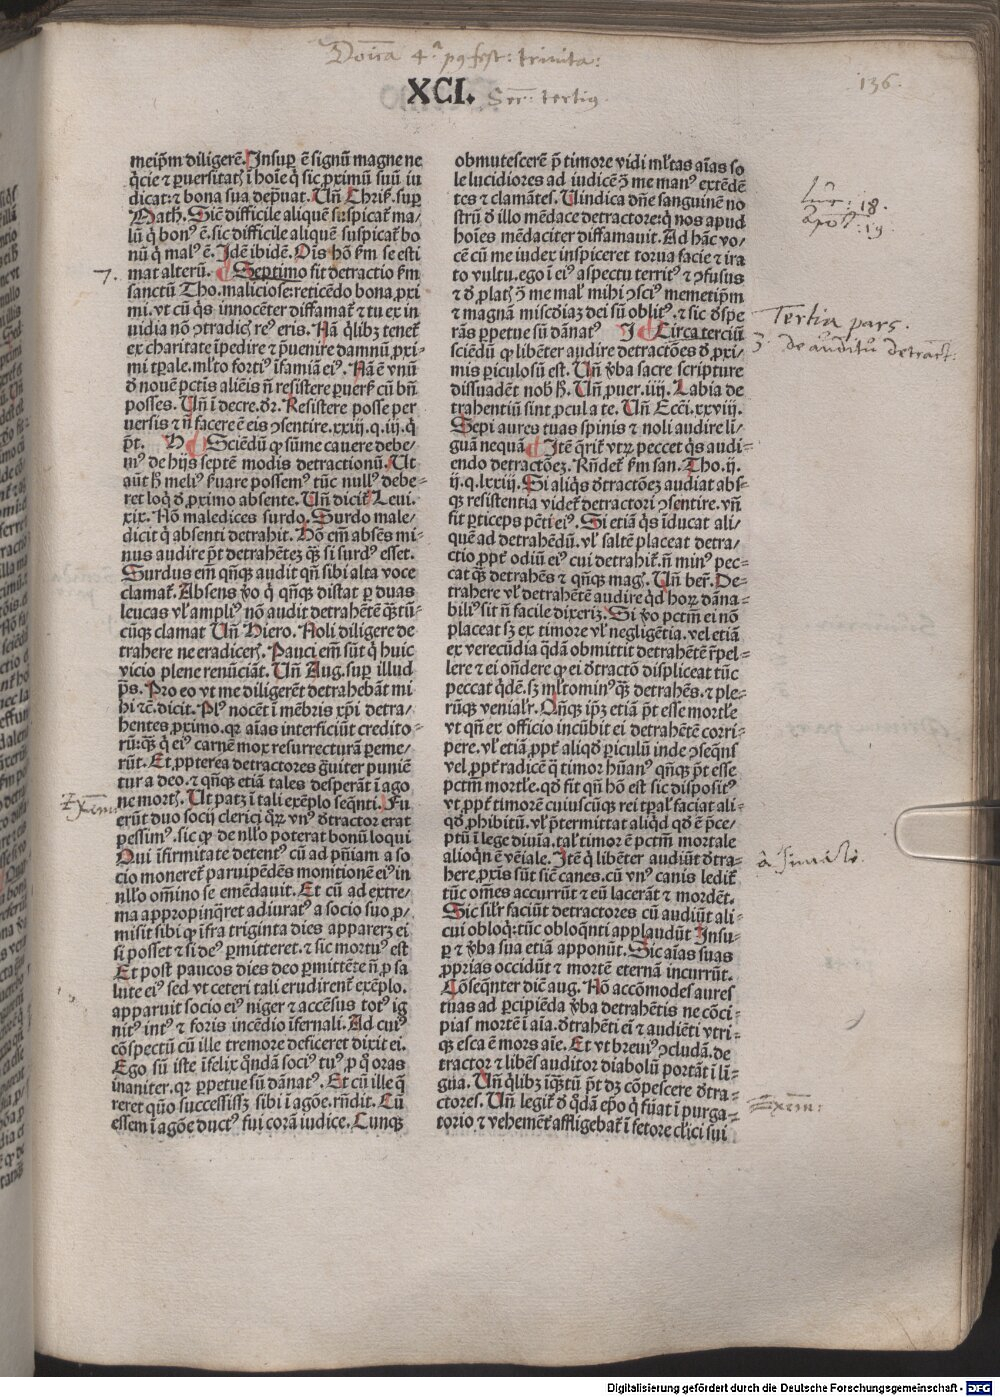 Dominica 4ª pꝯ fest: trinita:
XCI. Ser: tertiꝯ
136.
meip̄m diligerē. Insuꝑ ē signū magne ne
q̄cie ⁊ ꝑuersitatꝭ ī hoīe q̇ sic ꝓximū suū iu
dicat: ⁊ bona sua dep̄uat. Vn̄ Chriſ. suꝑ
Math. Sic̄ difficile aliquē suspicat̄ ma-
lū q̇ bonꝰ ē. sic difficile aliquē suspicat̄ bo
nū q̇ malꝰ ē. Idē ibidē. Oīs hō ẜm se esti
mat alterū. Septimo fit detractio ẜm
sanctū Tho. maliciose: reticēdo bona ꝓxi
mi. vt cū q̇s innocēter diffamat̄ ⁊ tu ex in
uidia nō ꝯtradicꝭ reꝰ eris. Nā q̇libꝫ tenet̄
ex charitate īpedire ⁊ p̄uenire damnū ꝓxi-
mi tꝑale. ml̓to fortiꝰ īfamiā eiꝰ. Nā ē vnū
ꝺ nouē pctīs aliēis nō resistere ꝑuerſ cū bn̄
posses. Vn̄ ī decre. ꝺr̄. Resistere posse per
uersis ⁊ nō facere ē eis ꝯsentire. xxiij. q. iij. q̇
p̄t. H Sciēdū ꝙ sūme cauere debe-
mꝰ de hijs septē modis detractionū. Ut
aūt hꝭ meliꝰ ẜuare possemꝰ tūc nullꝰ debe-
ret loq̇ ꝺ ꝓximo absente. Vn̄ dicit̄ Leui.
xix. Nō maledices surdo. Surdo male/
dicit q̇ absenti detrahit. Hō em̄ absēs mi-
nus audire p̄t detrahētē q̄ꝫ si surdꝰ esset.
Surdus em̄ qn̄qꝫ audit qn̄ sibi alta voce
clamat̄. Absens v̄o q̇ qn̄qꝫ distat ꝑ duas
leucas vl̓ ampliꝰ nō audit detrahētē q̄ꝫtū-
cūqꝫ clamat Vn̄ Hiero. Noli diligere de
trahere ne eradiceris. Pauci em̄ sūt q̇ huic
vicio plene renūciāt. Vn̄ Aug. suꝑ illud
ps̄. Pro eo vt me diligerēt detrahebāt mi
hi ⁊c̄. dicit. Plꝰ nocēt ī mēbris xp̄i detra/
hentes ꝓximo. qr aīas interficiūt credito-
rū: q̄ꝫ q̇ eiꝰ carnē mox resurrecturā ꝑeme/
rūt. Et ꝓpterea detractores gͣuiter puniē
tur a deo. ⁊ qn̄qꝫ etiā tales desperāt ī ago
ne mortꝭ. Ut patꝫ ī tali exēplo seq̄nti. Fu
erūt duo socij clerici qꝝ vnꝰ ꝺtractor erat
pessimꝰ. sic ꝙ de nl̓lo poterat bonū loqui
Qui īfirmitate detentꝰ cū ad pn̄iam a so
cio moneret̄ paruipēdēs monitionē eiꝰ in
nl̓lo om̄ino se emēdauit. Et cū ad extre/
ma appropinq̄ret adiuratꝰ a socio suo ꝓ/
misit sibi ꝙ ifra triginta dies apparerꝫ ei
si posset ⁊ si deꝰ ꝑmitteret. ⁊ sic mortuꝰ est
Et post paucos dies deo ꝑmittēte nō ꝓ sa
lute eiꝰ sed vt ceteri tali erudirent̄ exēplo.
apparuit socio eiꝰ niger ⁊ accēsus totꝰ ig
nitꝰ intꝰ ⁊ foris incēdio īfernali. Ad cuiꝰ
cōspectū cū ille tremore deficeret dixit ei.
Ego sū iste īfelix q̄ndā sociꝰ tuꝰ ꝓ q̇ oras
inaniter. qr ꝑpetue sū dānatꝰ. Et cū ille q̄
reret quō successissꝫ sibi ī agōe. rn̄dit. Cū
essem ī agōe ductꝰ fui corā iudice. Cunqꝫ
obmutescerē p̄ timore vidi ml̓tas aīas so
le lucidiores ad iudicē ꝯ me manꝰ extēdē
tes ⁊ clamātes. Vindica dn̄e sanguinē no
strū ꝺ illo mēdace detractore: q̇ nos apud
hoīes mēdaciter diffamauit. Ad hāc vo/
cē cū me iudex inspiceret torua facie ⁊ ira
to vultu. ego ī eiꝰ aspectu territꝰ ⁊ ꝯfusus
⁊ ꝺ ꝓlatꝭ ꝯ me malꝭ mihi ꝯsciꝰ memetip̄m
⁊ magnā miscḋiaꝫ dei sū oblitꝰ. ⁊ sic ꝺspe
rās ꝑpetue sū dānatꝰ I Circa terciū
sciēdū ꝙ libēter audire detractōes ꝺ ꝓxi/
mis ꝑiculosū est. Vn̄ ꝟba sacre scripture
dissuadēt nob̄ hꝭ. Vn̄ ꝓuer. iiij. Labia de
trahentiū sint ꝓcul a te. Vn̄ Ecci. xxviij.
Sepi aures tuas spinis ⁊ noli audire li-
guā nequā Itē q̄rit̄ vtꝝ peccet q̇s audi-
endo detractōeꝫ. Rn̄det̄ ẜm san. Tho. ij.
ij. q. lxxiij. Si aliq̇s ꝺtractōeꝫ audiat abs-
qꝫ resistentia videt̄ detractori ꝯsentire. vn̄
fit ꝑticeps pc̄ti eiꝰ. Si etiā q̇s īducat ali-
quē ad detrahēdū. vl̓ saltē placeat detra/
ctio ꝓpt̓ odiū eiꝰ cui detrahit̄. nō minꝰ pec-
cat q̄ꝫ detrahēs ⁊ qn̄qꝫ magꝭ. Vn̄ ber̄. De-
trahere vl̓ detrahētē audire qḋ hoꝝ dāna-
biliꝰ sit nō facile dixeriꝫ. Si v̄o pctm̄ ei nō
placeat sꝫ ex timore vl̓ negligētia. vel etiā
ex verecūdia q̇dā obmittit detrahētē r̄pel-
lere ⁊ ei on̄dere ꝙ ei ꝺtractō displiceat tūc
peccat q̇dē. sꝫ ml̓tominꝰ q̄ꝫ detrahēs. ⁊ ple-
rūqꝫ venialr̄. Qn̄qꝫ ip̄ꝫ etiā p̄t esse mortl̓e
vt qn̄ ex officio incūbit ei detrahētē corri-
pere. vl̓ etiā ꝓpt̓ aliqḋ ꝑiculū inde ꝯseq̄ns
vel ꝓpt̓ radicē q̇ timor hūanꝰ qn̄qꝫ p̄t esse
pctm̄ mortl̓e. qḋ fit qn̄ hō est sic dispositꝰ
vt ꝓpt̓ timorē cuiuscūqꝫ rei tꝑal̓ faciat ali-
qḋ ꝓhibitū. vl̓ p̄termittat aliqḋ qḋ ē p̄ce/
ptū ī lege diuīa. tal̓ timor ē pctm̄ mortale
alioqn̄ ē vēiale. Itē q̇ libēter audiūt ꝺtra-
here ꝓxīs sūt siē canes. cū vnꝰ canis ledit̄
tūc om̄es accurrūt ⁊ eū lacerāt ⁊ mordēt.
Sic sil̓r faciūt detractores cū audiūt ali-
cui obloq̇: tūc obloq̄nti applaudūt Insu-
ꝑ ⁊ ꝟba sua etiā apponūt. Sic aīas suas
ꝓprias occidūt ⁊ mortē eternā incurrūt.
Cōseq̄nter dic̄ aug. Nō accōmodes aures
tuas ad ꝑcipiēda ꝟba detrahētis ne cōci-
pias mortē ī aīa. ꝺtrahēti ei ⁊ audiēti vtri-
qꝫ esca ē mors aīe. Et vt breuiꝰ ꝯcludā. de
tractor ⁊ libēs auditor diabolū portāt ī li-
gua. Vn̄ q̇libꝫ iq̄ꝫtū p̄t dꝫ cōpescere ꝺtra-
ctores. Vn̄ legit̄ ꝺ q̇dā ep̄o q̇ fuīat ī purga-
torio ⁊ vehemēt̓ affligebat̄ ī fetore cl̓ici sui
7.
Tertia pars.
de auditu detract:
Exem:
Digitalisierung gefördert durch die Deutsche Forschungsgemeinschaft - DFG